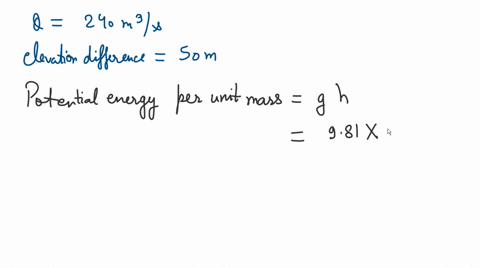 Q = 240 m³/s
elevation difference = 50m
Potential energy per unit mass = g h
= 9.81 X